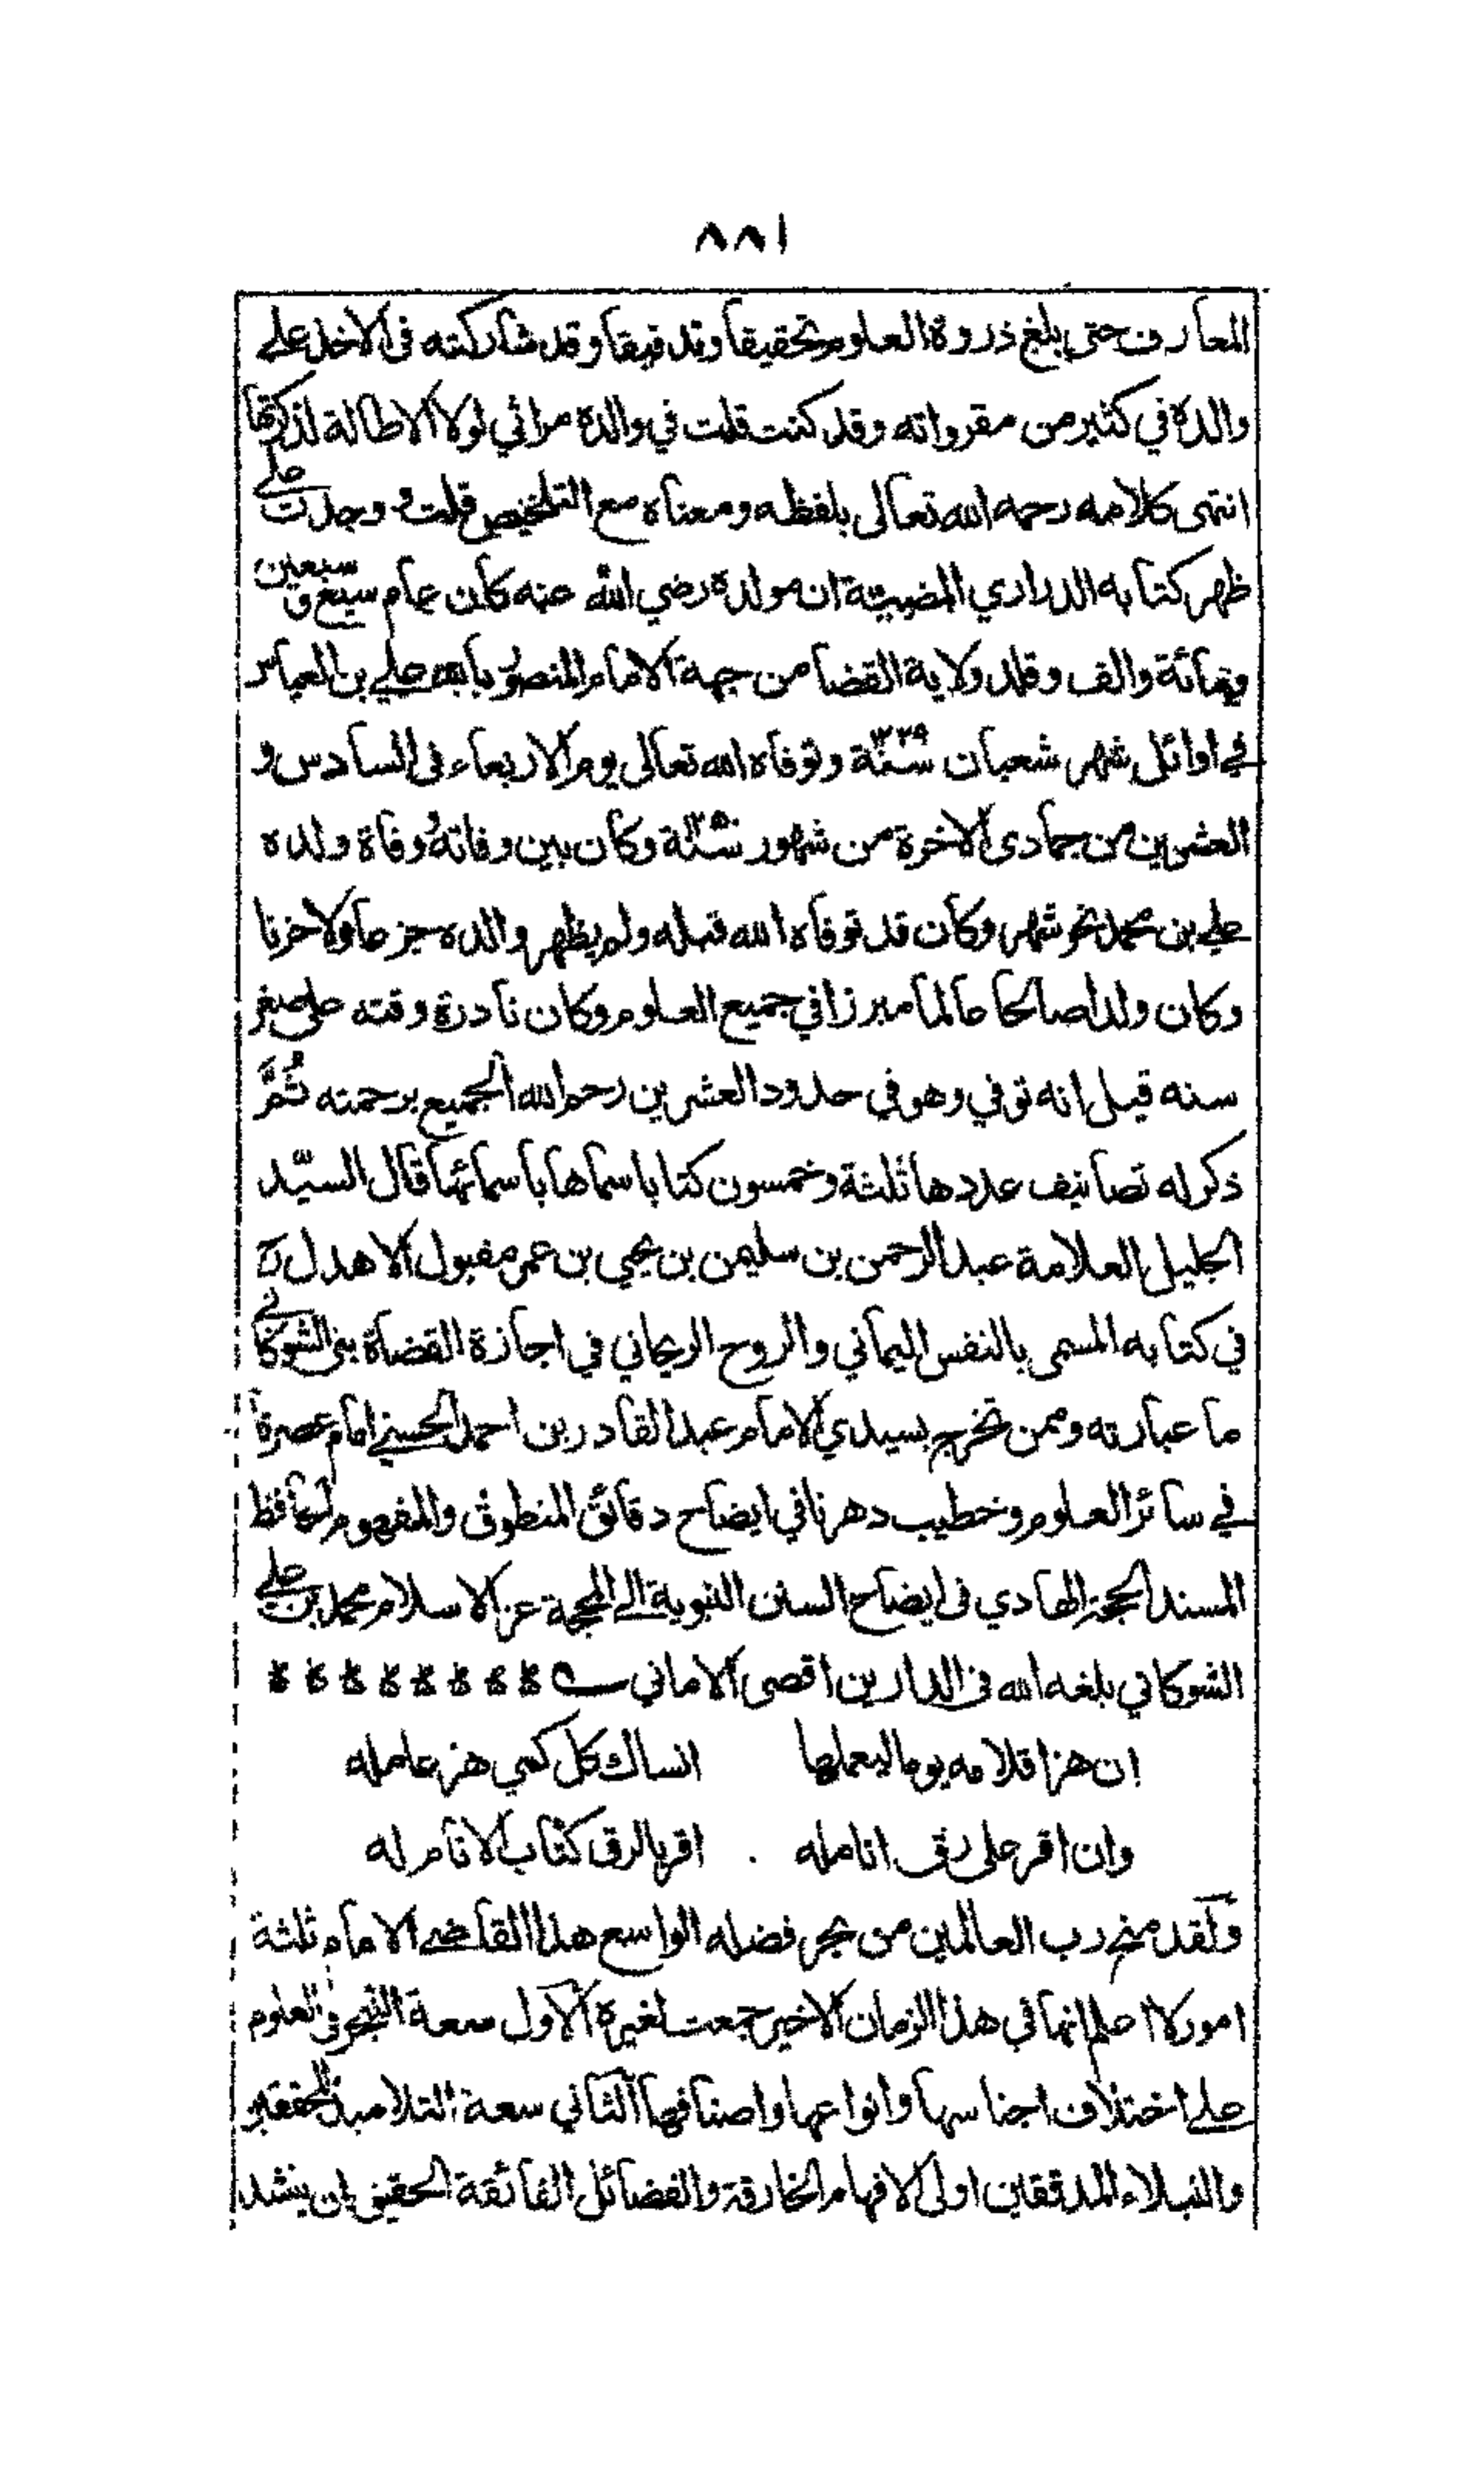 ٨٨١
المعارف حتى بلغ ذروة العلوم تحقيقا وتدقيقا وقد شاركته في الاخذ على
والدة في كثير من مقرواته وقد كنت قلت في والدة مراثي لولا الاطالة لذكرتها
انتهى كلامه رحمه الله تعالى بلفظه ومعناه مع التلخيص قلت وجدت على
ظهر كتابه الدراري المضيئة ان مولدة رضي الله عنه كان عام سبع وسبعين
ومائة والف وقلد ولاية القضا من جهة الامام المنصور بالله علي بن العباس
في اوائل شهر شعبان سنة وتوفاه الله تعالى يوم الاربعاء في السادس و
العشرين من جمادى الاخرة من شهور سنة وكان بين وفاته وفاة ولده
علي بن محمد نحو شهر وكان قد توفاه الله قبله ولم يظهر والده جزعا ولا حزنا
وكان ولدا صالحا عالما مبرزا في جميع العلوم وكان نادرة وقته على صغر
سنه قيل انه توفي وهو في حدود العشرين رحم الله الجميع برحمته ثُمَّ
ذكر له تصانيف عددها ثلثة وخمسون كتابا سماها باسمائها قال السيّد
الجليل العلامة عبد الرحمن بن سليمن بن يحيى بن عمر مقبول الاهدل رح
في كتابه المسمى بالنفس اليماني والروح الريحاني في اجازة القضاة بني الشوكاني
ما عبارته وممن تخرج بسيدي الامام عبد القادر بن احمد الحسني امام عصرة
في سائر العلوم وخطيب دهرنا في ايضاح دقائق المنطوق والمفهوم الحافظ
المسند الحجة الهادي في ايضاح السنن النبوية الى المحجة عز الاسلام محمد بن علي
الشوكاني بلغه الله في الدارين اقصى الاماني
ان هزا قلامه يوما ليعملها انساك كل كمي هز عامله
وان اقر على رق انامله اقر بالرق كتاب الانام له
ولقد منح رب العالمين من بحر فضله الواسع هذا القاضي الامام ثلثة
امور لا اعلم انها في هذا الزمان الاخير جمعت لغيرة الاول سعة التبحر في العلوم
على اختلاف اجناسها وانواعها واصنافها الثاني سعة التلاميذ المحققين
والنبلاء المدققين اولى الافهام الخارقة والفضائل الفائقة الحقيق ان ينشد